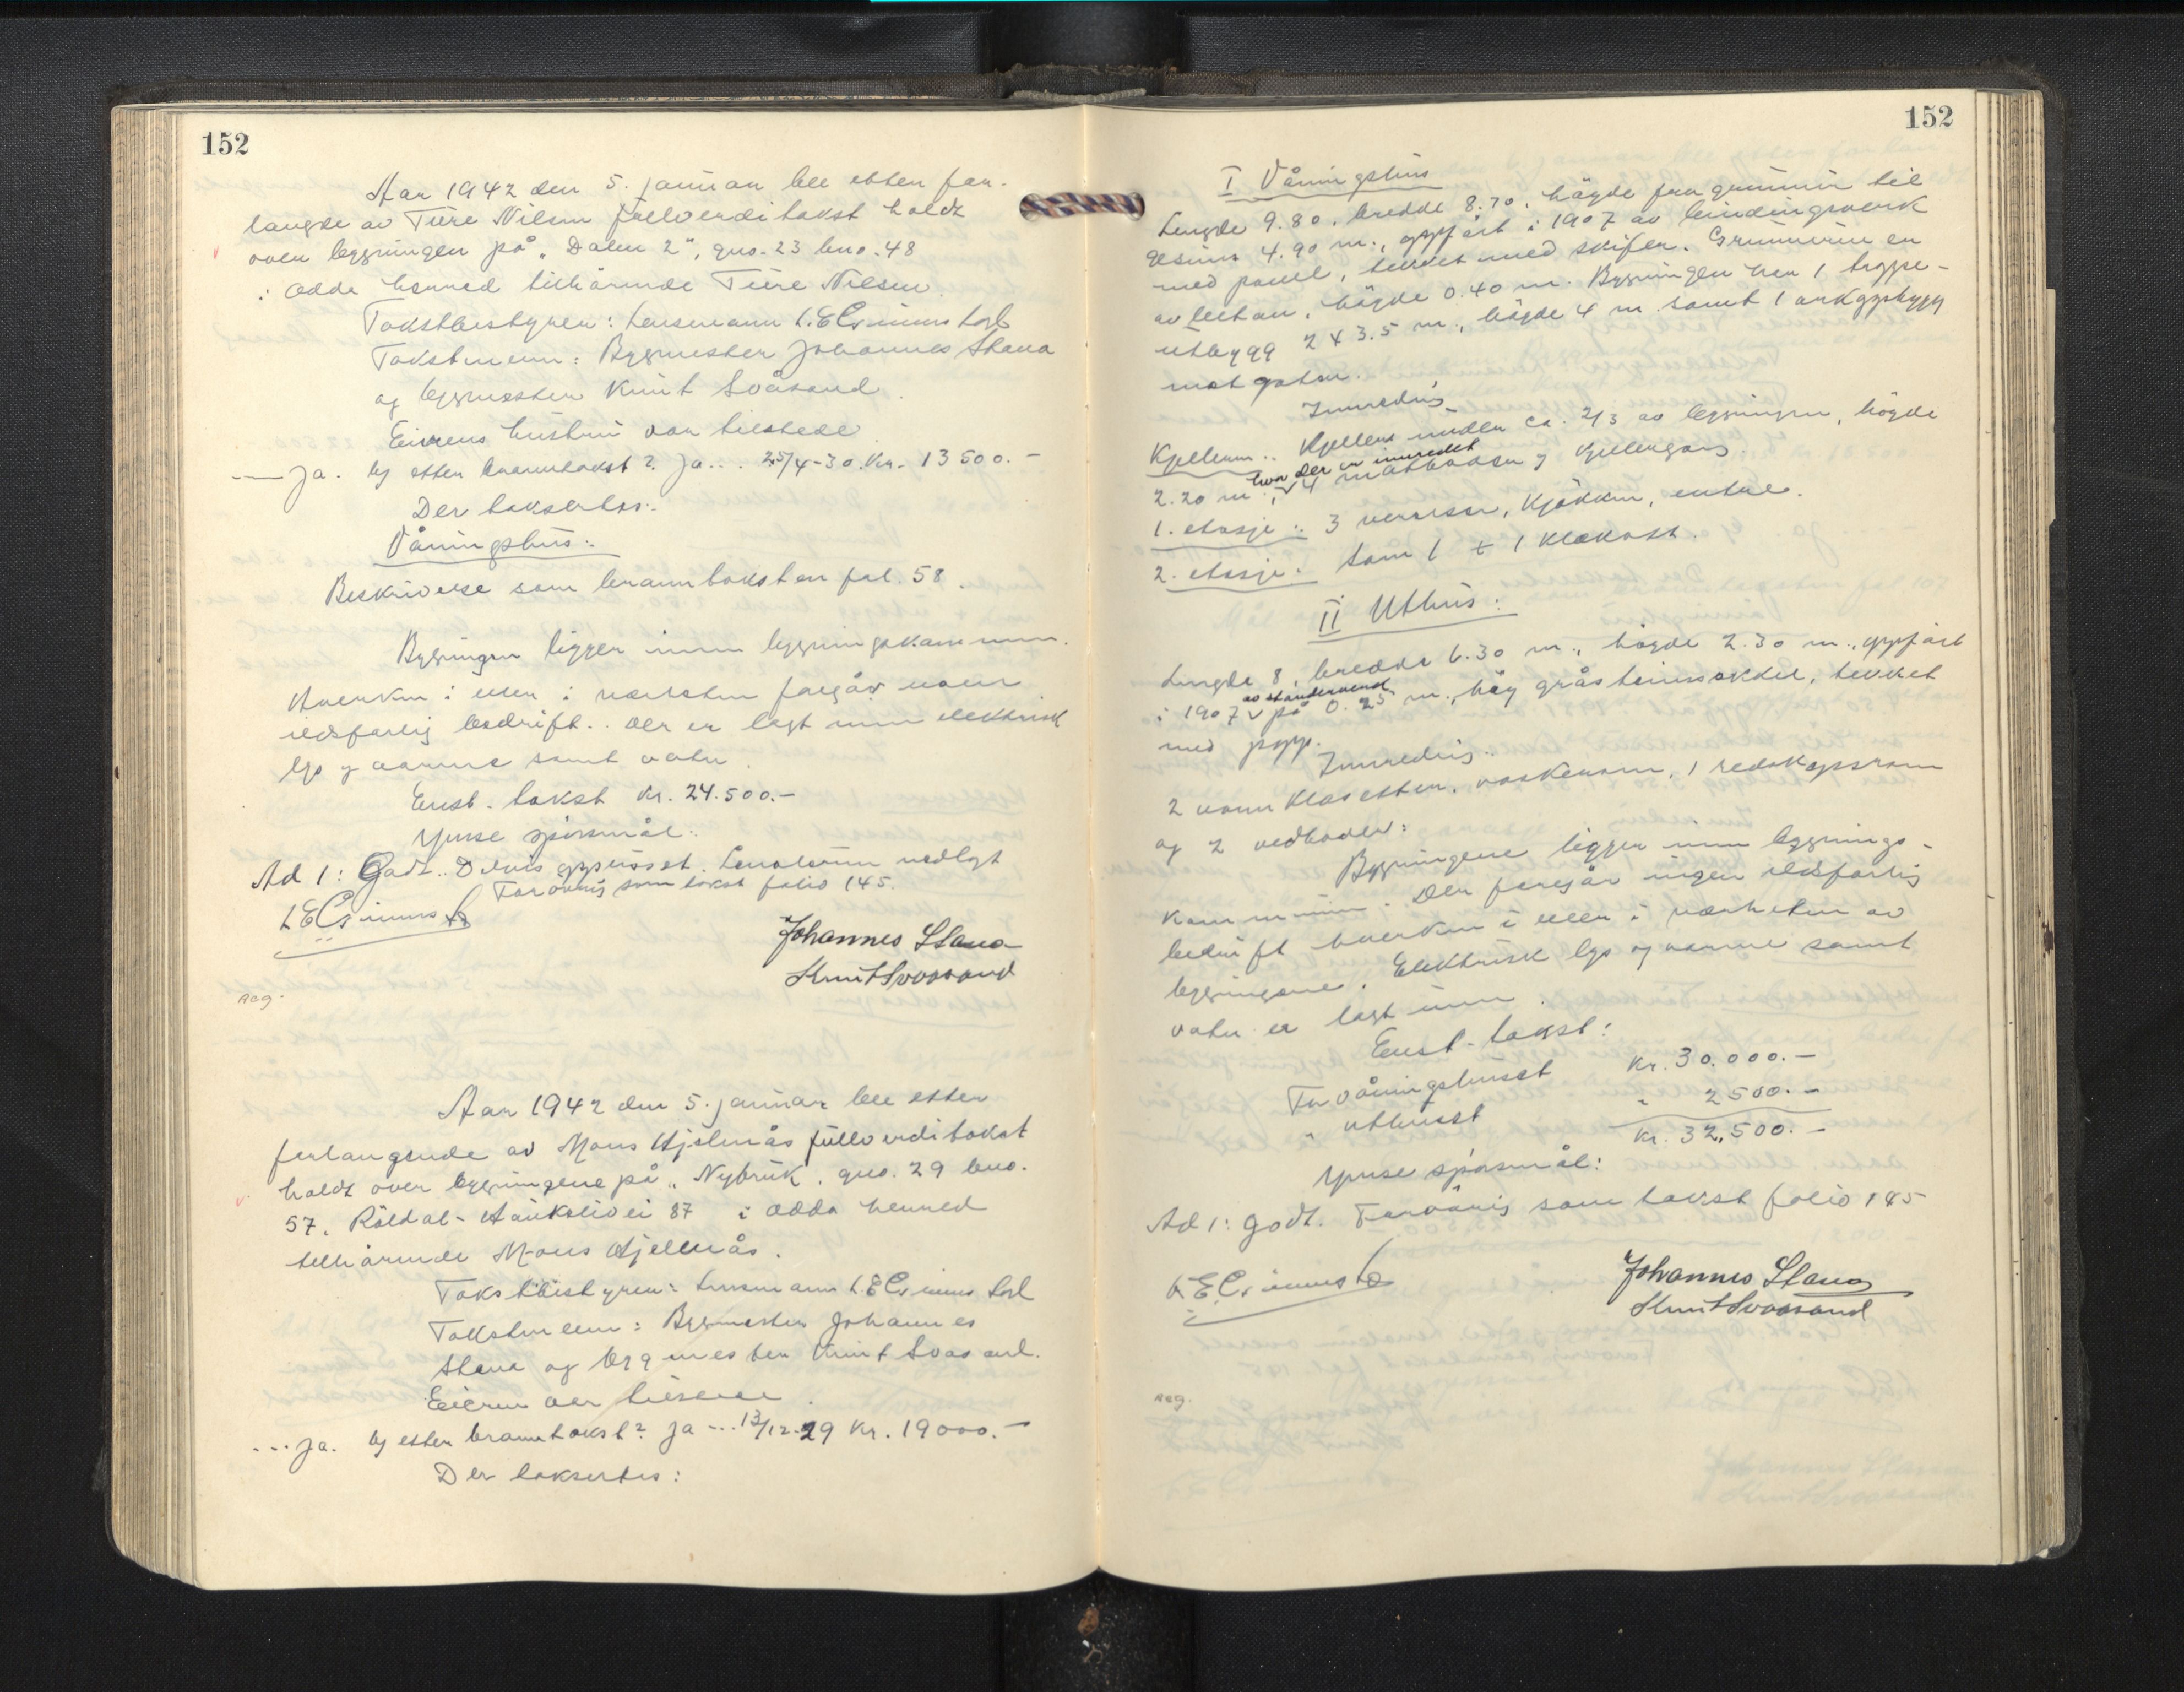 152
Aar 1942 den 5. januar ble etter for-
langde av Ture Nilsen fullverditakst holdt
over bygningen på „Dalen 2", gno. 23 bno. 48
i Odda herred tilhörende Ture Nilsen.
Takstbestyrer: Lensmann
Takstmenn: Bygmester Johannes Stana
og bygmester Knut Svåsand.
Eierens hustru var tilstede.
— Ja. Ny etter branntakst? Ja... 25/4-30. Kr. 13500.-
Der taksertes:
Våningshus:
Beskrivelse som branntaksten fol. 58.
Bygningen ligger innen bygningskommunen.
Hverken i eller i nærheten foregår noen
ildsfarlig bedrift. Der er lagt inn elektrisk
lys og varme samt vatn.
Enst. takst kr. 24.500.-
Ymse spörsmål:
Ad 1: Godt. Delvis oppusset. vedlagt
Forövrig som takst folio 145.
Johannes Stana
Knut Svaasand
Reg.
Aar 1942 den 5. januar ble etter
forlangende av Mons Hjelmås fullverditakst
holdt over bygningene på „Nybruk", gno. 29 bno.
57, Röldal-Haukelivei 87 i Odda herred
tilhörende Mons Hjelmås.
Takstbestyrer: Lensmann
Takstmenn: Bygmester Johannes
Stana og bygmester Knut Svåsand.
Eieren var tilstede.
... Ja. Ny etter branntakst? Ja ... 13/12-29 Kr. 19000.-
Der taksertes:
152
I Våningshus
Lengde 9.80, bredde 8.70, högde fra grunnmur til
gesims 4.90 m., oppfört i 1907 av bindingsverk
med panel, tekket med skifer. Grunnmuren er
av betong, högde 0.40 m. Bygningen har 1 trappe-
utbygg 2 x 3.5 m., högde 4 m samt 1 arkoppbygg
mot gaten.
Innredning
Kjelleren: Kjeller under ca. 2/3 av bygningen, högde
2.20 m., hvor der er innredet 4 matboder og kjellergang.
1. etasje: 3 verelser, kjökken, entré.
2. etasje: Som 1 + 1 klekott.
II Uthus:
Lengde 8, bredde 6.30 m., högde 2.30 m., oppfört
i 1907 av standerverk på 0.25 m. höy gråsteinssokkel, tekket
med papp.
Innredning:
2 vannklosetter, vaskerom, 1 redskapsrom
og 2 vedboder.
Bygningene ligger inn bygnings-
kommunen. Der foregår ingen ildsfarlig
bedrift hverken i eller i nærheten av
bygningene. Elektrisk lys og varme samt
vatn er lagt inn.
Enst. takst:
For våningshuset kr. 30.000.-
" uthuset " 2500.-
Kr. 32,500.-
Ymse spörsmål:
Ad 1: godt. Forövrig som takst folio 145
Johannes Stana
Knut Svaasand
Reg.